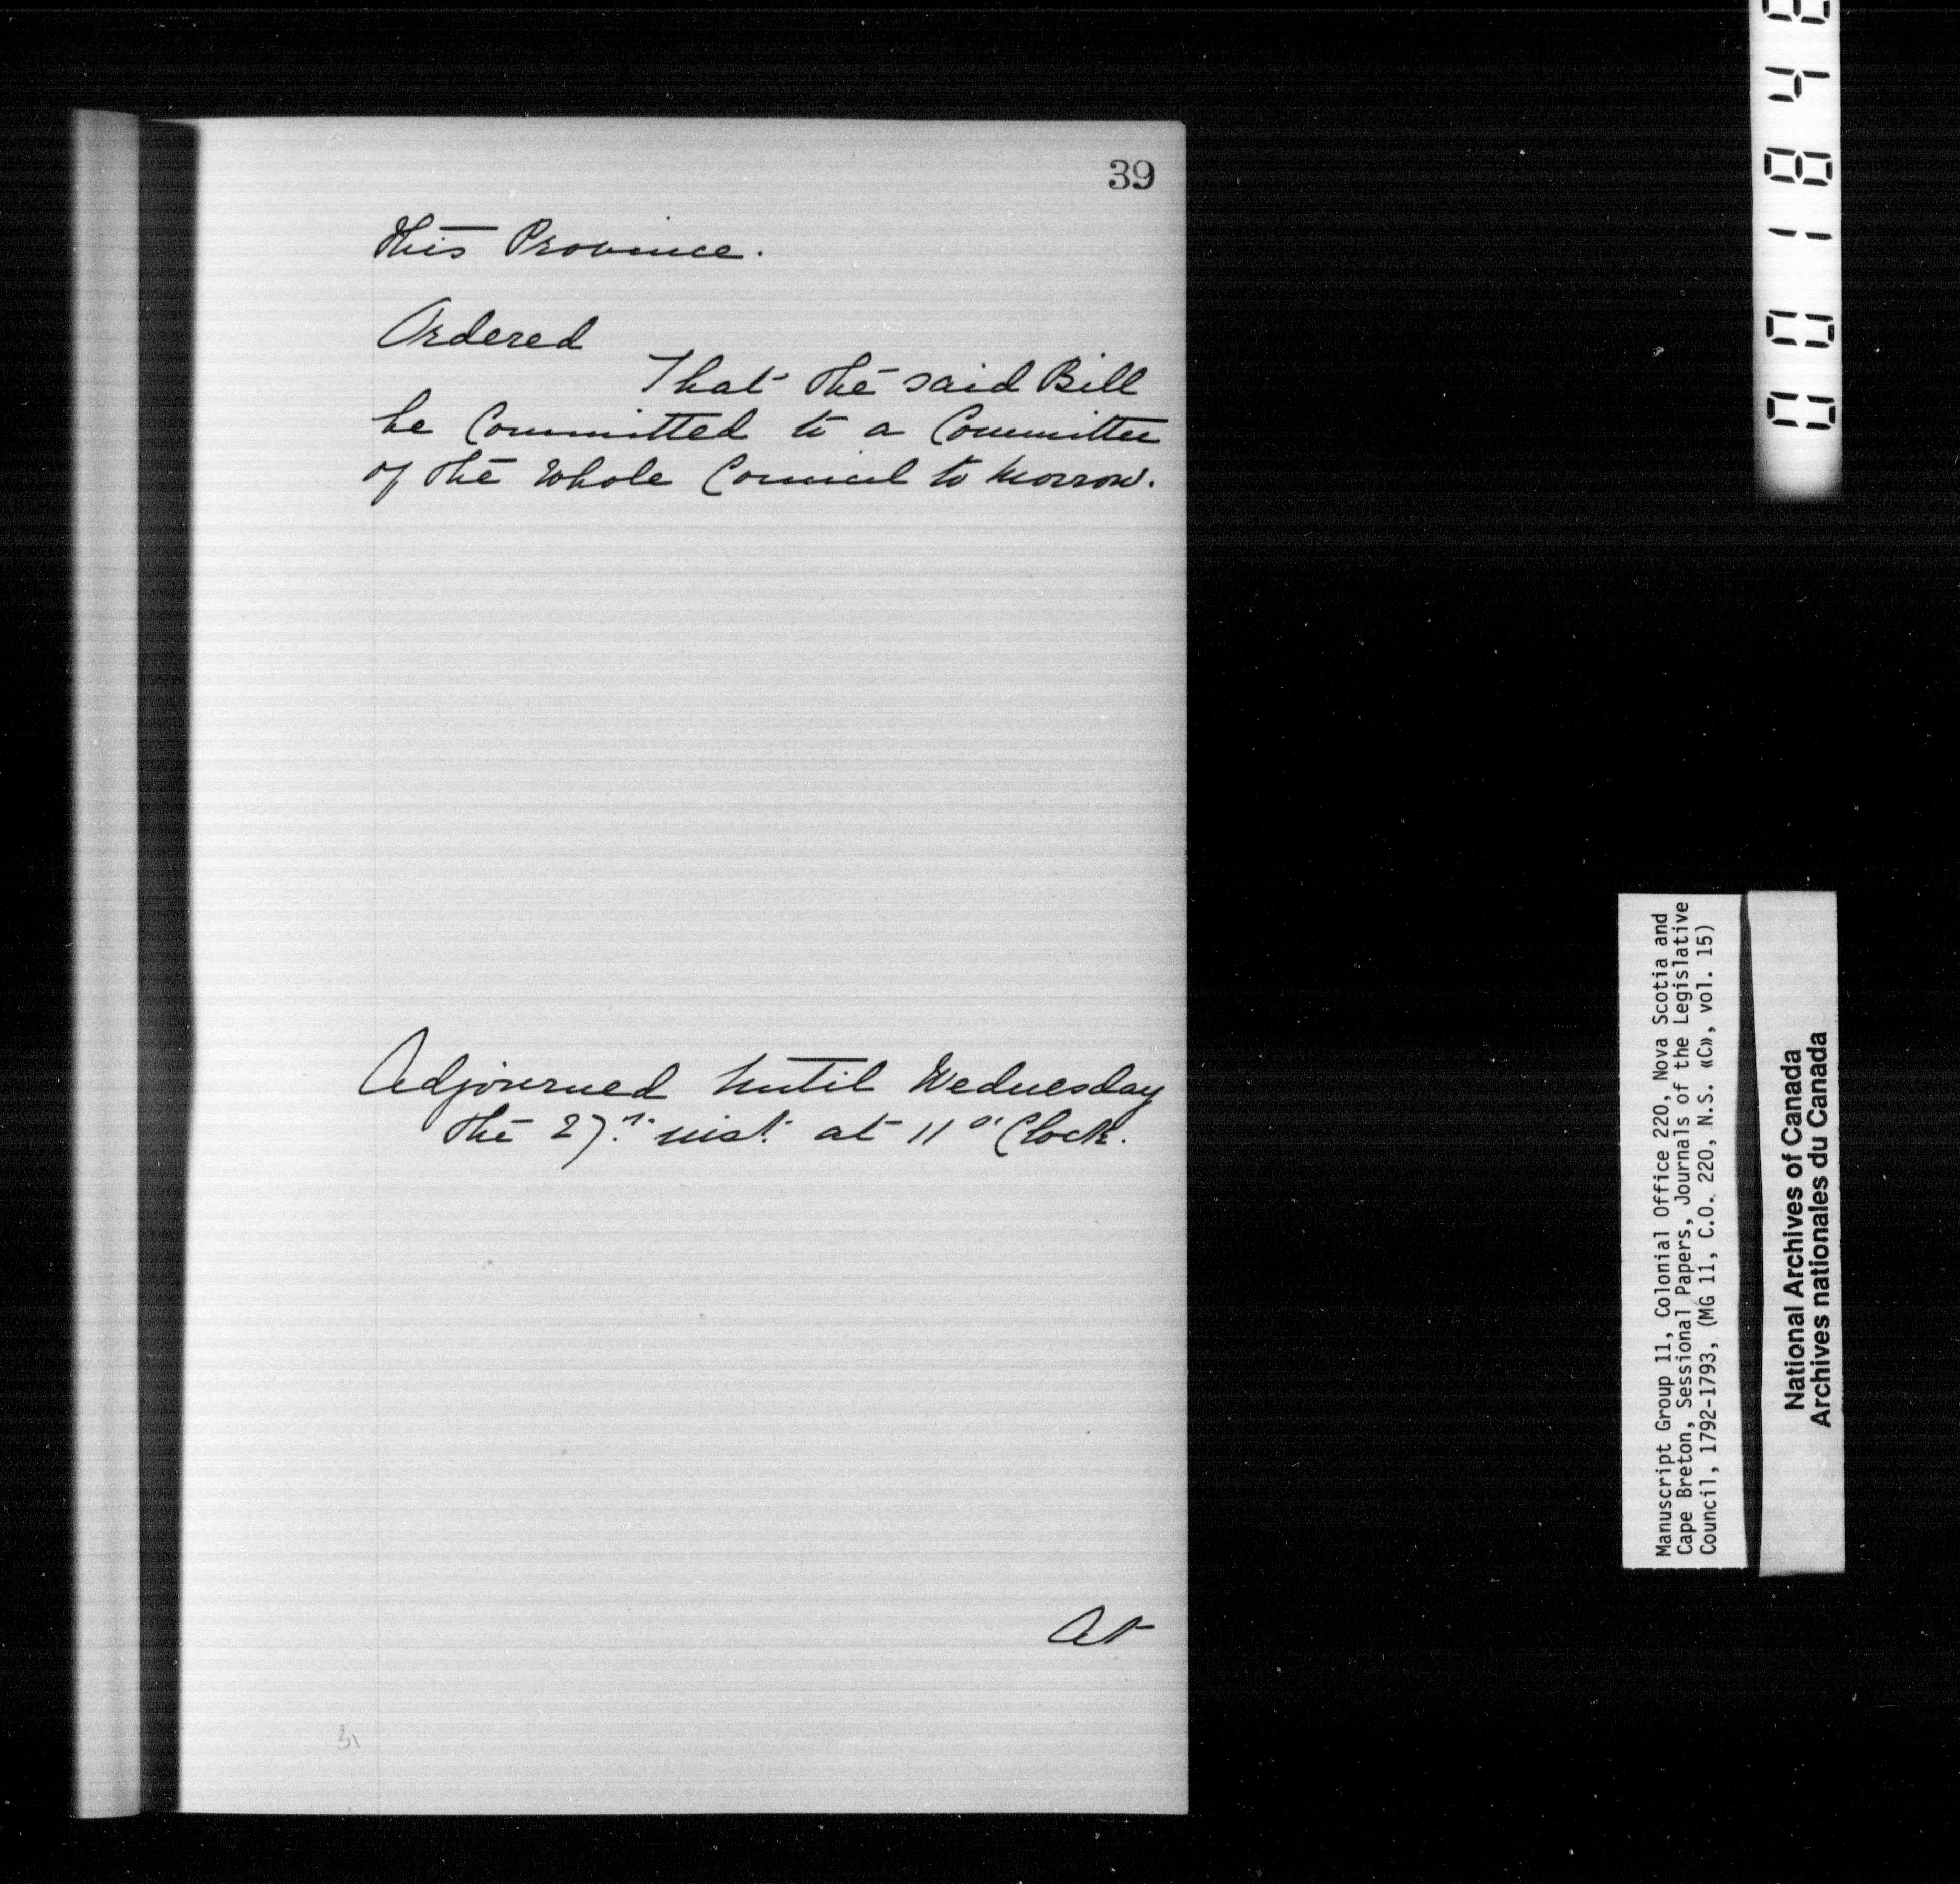 39
this Province.
Ordered
That the said Bill
be Committed to a Committee
of the Whole Council to morrow.
Adjourned Until Wednesday
the 27th inst. at 11 o'Clock.
At
31
001848
Manuscript Group 11, Colonial Office 220, Nova Scotia and
Cape Breton, Sessional Papers, Journals of the Legislative
Council, 1792-1793, (MG 11, C.O. 220, N.S. «C», vol. 15)
National Archives of Canada
Archives nationales du Canada